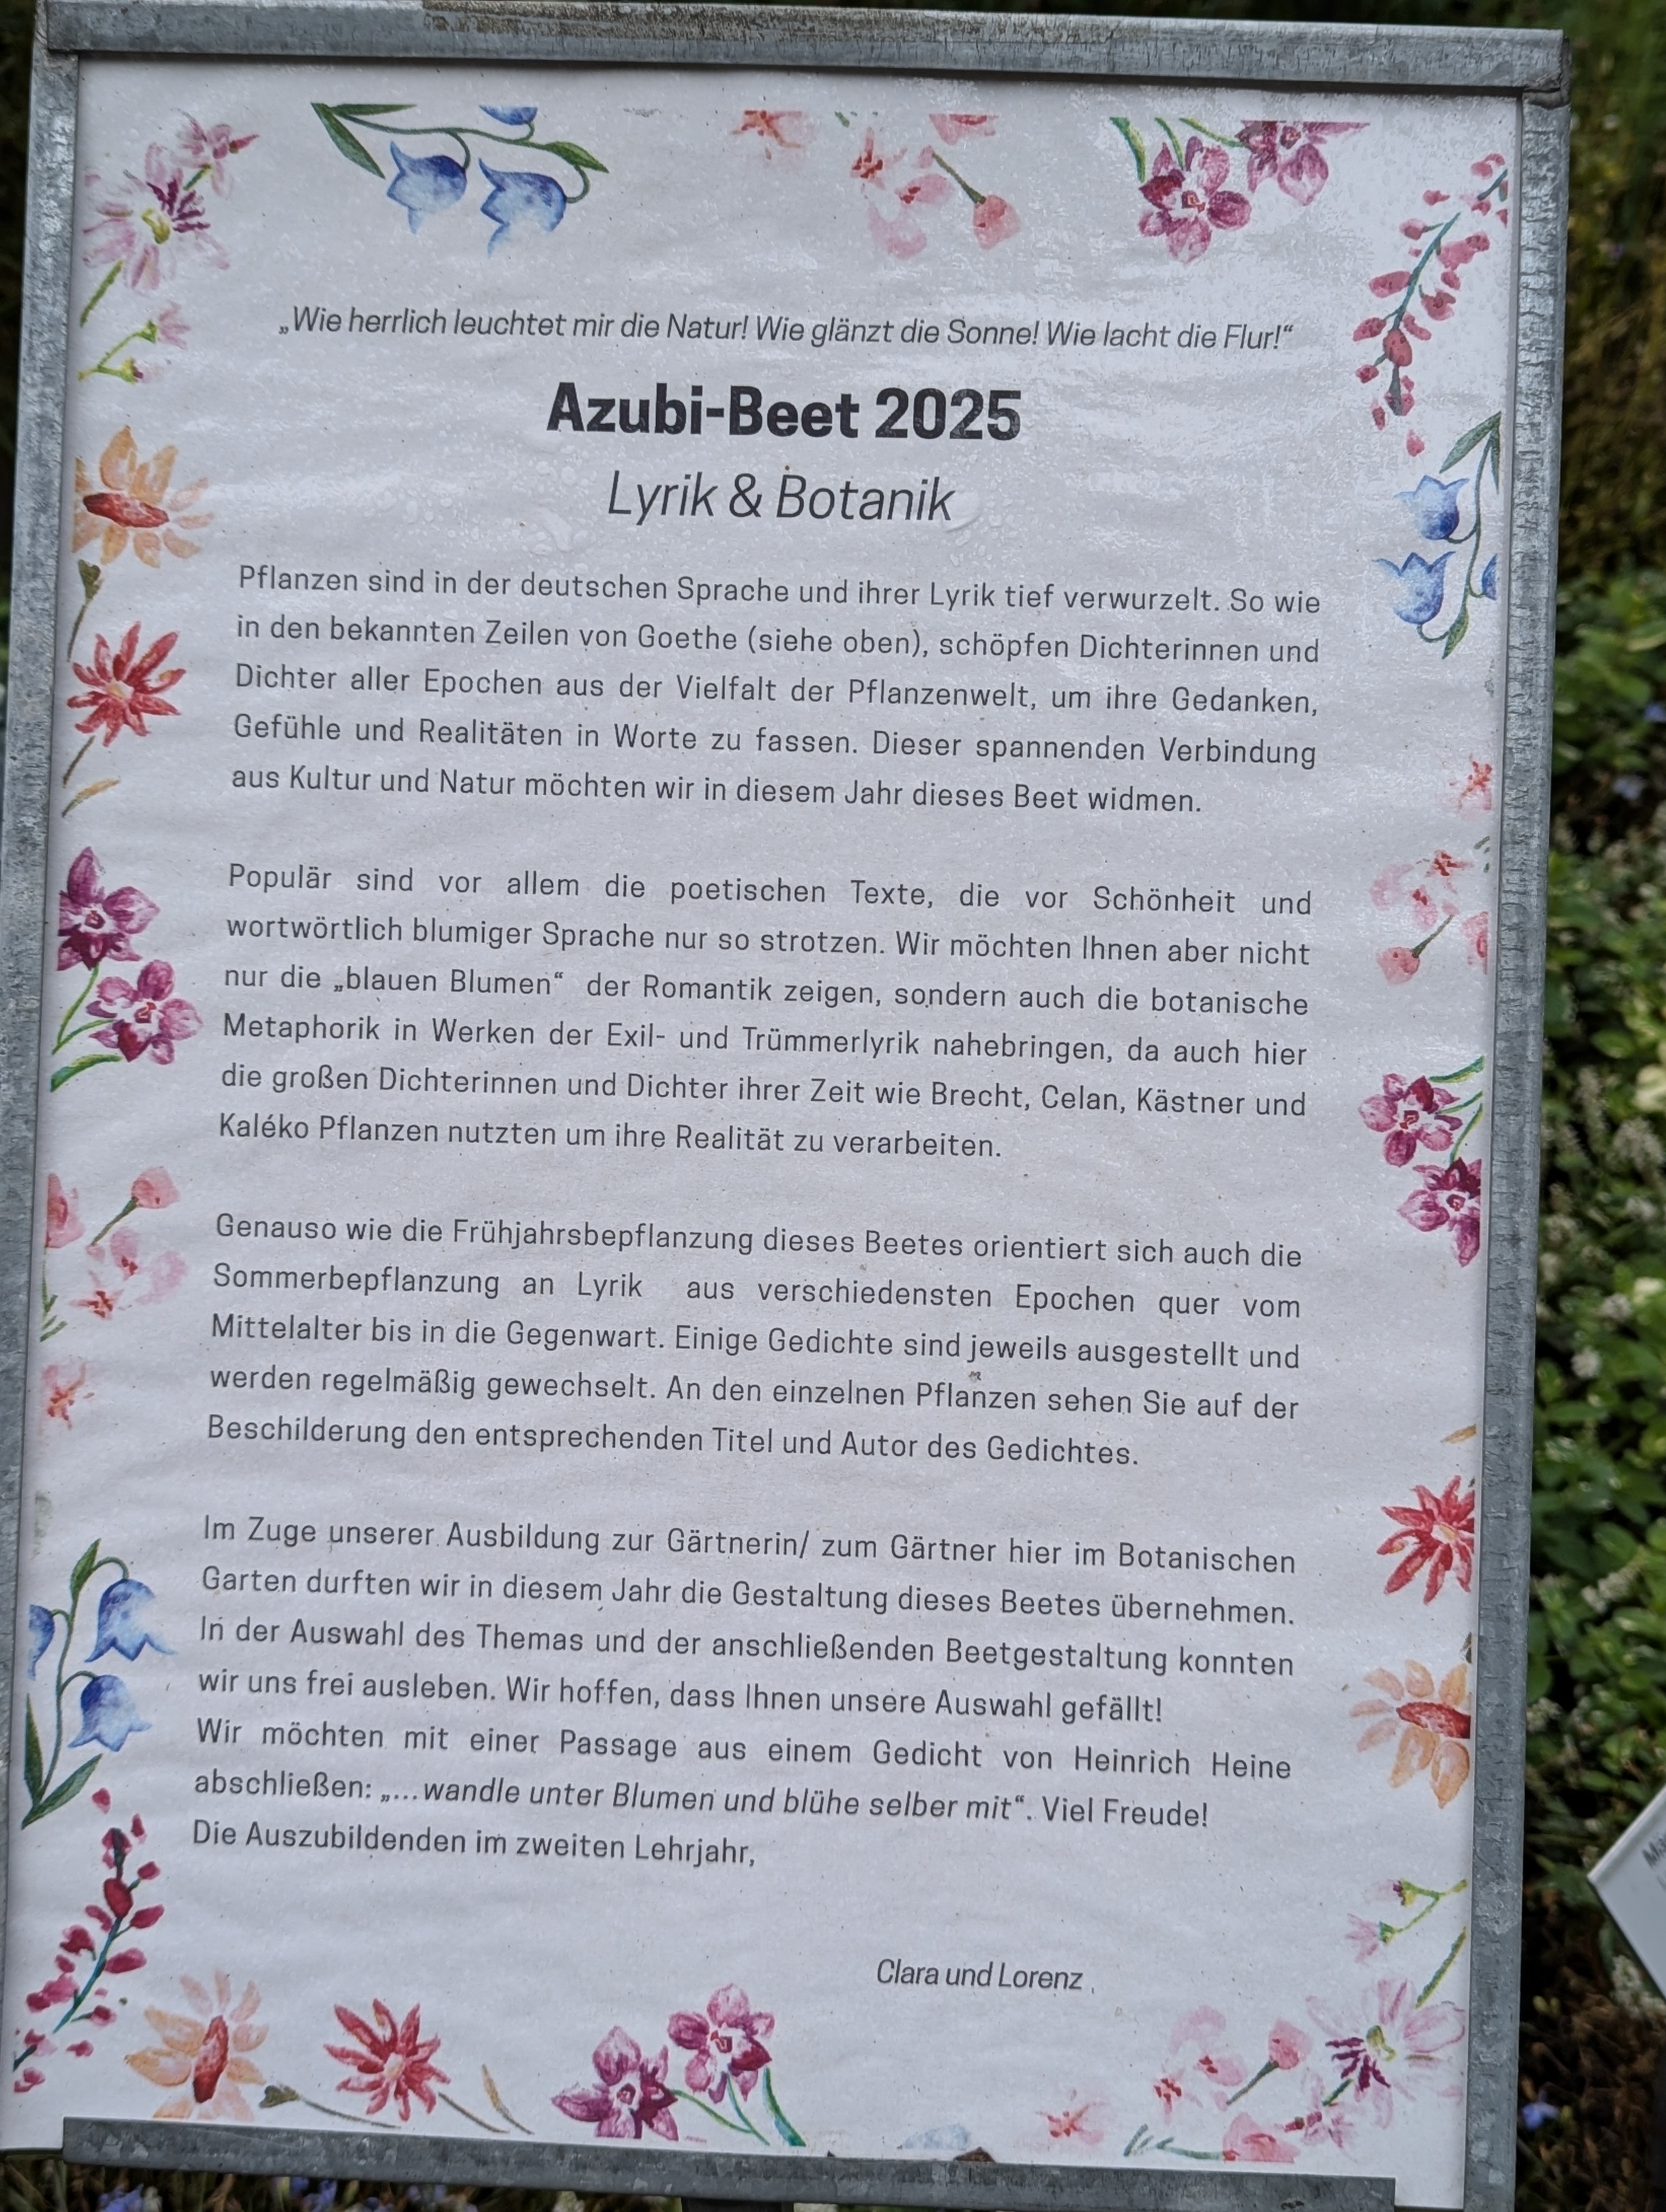 „Wie herrlich leuchtet mir die Natur! Wie glänzt die Sonne! Wie lacht die Flur!“
Azubi-Beet 2025
Lyrik & Botanik
Pflanzen sind in der deutschen Sprache und ihrer Lyrik tief verwurzelt. So wie
in den bekannten Zeilen von Goethe (siehe oben), schöpfen Dichterinnen und
Dichter aller Epochen aus der Vielfalt der Pflanzenwelt, um ihre Gedanken,
Gefühle und Realitäten in Worte zu fassen. Dieser spannenden Verbindung
aus Kultur und Natur möchten wir in diesem Jahr dieses Beet widmen.
Populär sind vor allem die poetischen Texte, die vor Schönheit und
wortwörtlich blumiger Sprache nur so strotzen. Wir möchten Ihnen aber nicht
nur die „blauen Blumen“ der Romantik zeigen, sondern auch die botanische
Metaphorik in Werken der Exil- und Trümmerlyrik nahebringen, da auch hier
die großen Dichterinnen und Dichter ihrer Zeit wie Brecht, Celan, Kästner und
Kaléko Pflanzen nutzten um ihre Realität zu verarbeiten.
Genauso wie die Frühjahrsbepflanzung dieses Beetes orientiert sich auch die
Sommerbepflanzung an Lyrik aus verschiedensten Epochen quer vom
Mittelalter bis in die Gegenwart. Einige Gedichte sind jeweils ausgestellt und
werden regelmäßig gewechselt. An den einzelnen Pflanzen sehen Sie auf der
Beschilderung den entsprechenden Titel und Autor des Gedichtes.
Im Zuge unserer Ausbildung zur Gärtnerin/ zum Gärtner hier im Botanischen
Garten durften wir in diesem Jahr die Gestaltung dieses Beetes übernehmen.
In der Auswahl des Themas und der anschließenden Beetgestaltung konnten
wir uns frei ausleben. Wir hoffen, dass Ihnen unsere Auswahl gefällt!
Wir möchten mit einer Passage aus einem Gedicht von Heinrich Heine
abschließen: „...wandle unter Blumen und blühe selber mit“. Viel Freude!
Die Auszubildenden im zweiten Lehrjahr,
Clara und Lorenz